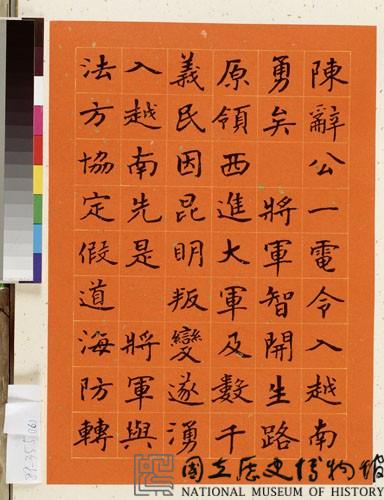 陳辭公一電令入越南
勇矣 將軍智開生路
原領西進大軍及數千
義民因昆明叛變遂湧
入越南先是 將軍與
法方協定假道海防轉
國立歷史博物館
NATIONAL MUSEUM OF HISTORY